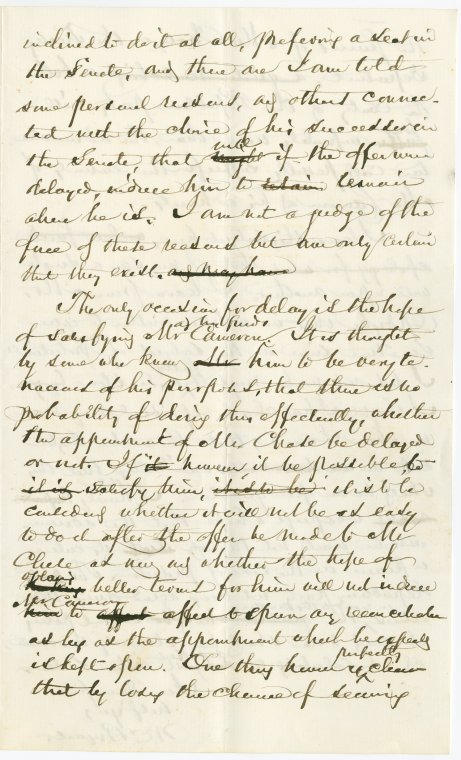 inclined to do it at all, preferring a seat in
the Senate, and there are I am told
some personal reasons, and others connec-
ted with the choice of his successor in
the Senate that might will if the offer were
delayed, induce him to retain remain
where he is. I am not a judge of the
force of these reasons but am only certain
that they exist. and may have
The only occasion for delay is the hope
of satisfying Mr and his friends Cameron. It is thought
by some who know Mr him to be very te-
nacious of his purposes, that there is no
probability of doing this effectually, whether
the appointment of Mr Chase be delayed
or not. If it however, it be possible to
it is satisfy him, it is to be it is to be
considered whether it will not be as easy
to do it after the offer be made to Mr
Chase as now and whether the hope of
obtaining better terms for him will not induce
Mr Cameron him to affect affect to spurn any reconciliation
as long as the appointment shall be
is kept open. One thing however is perfectly clear
that by losing the chance of securing